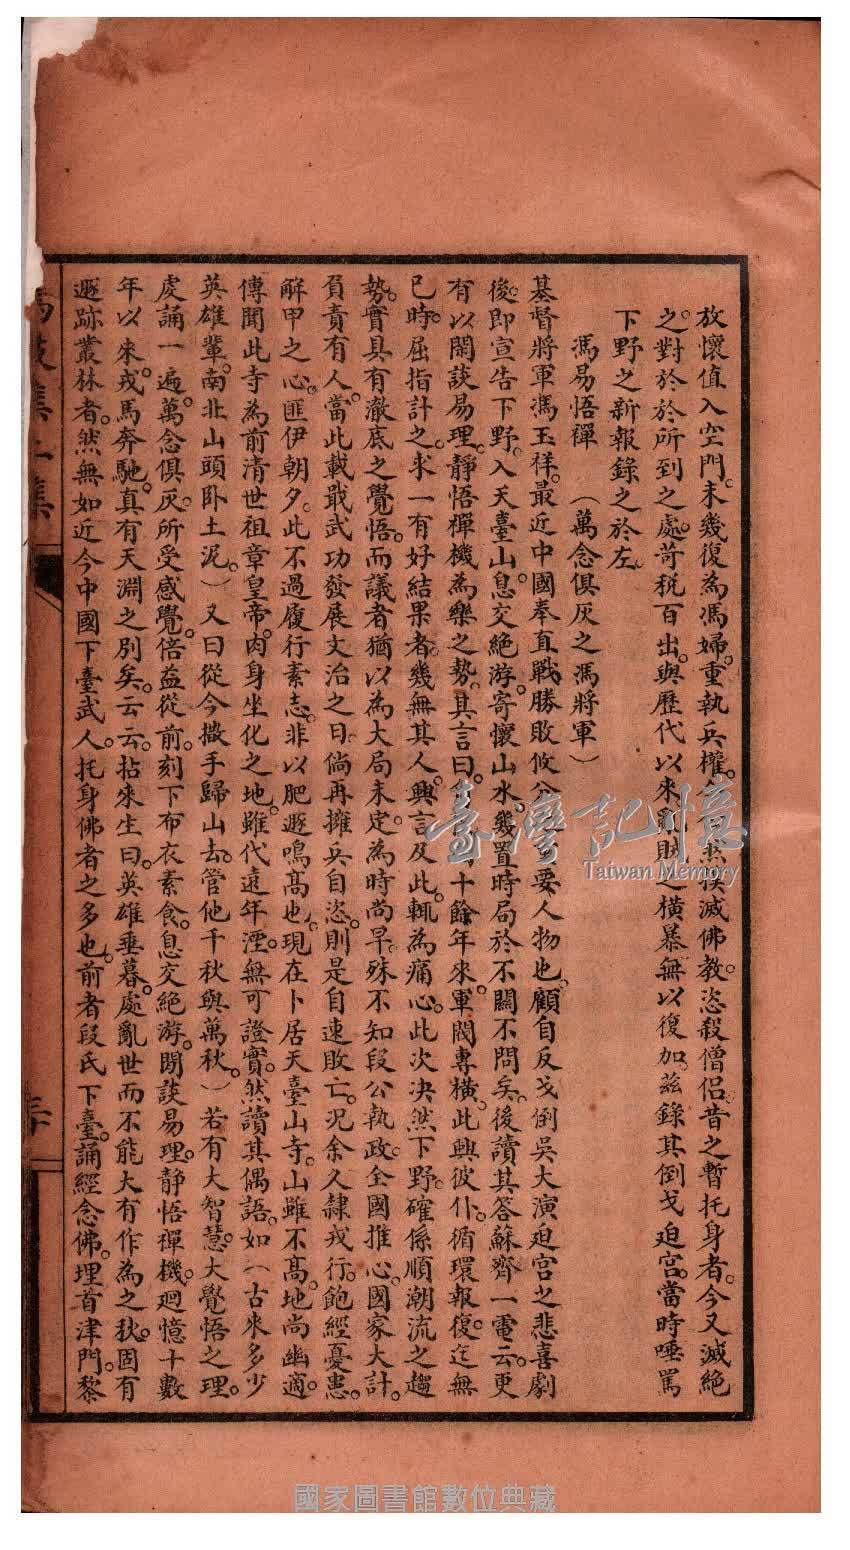 放懷值入空門。未幾復為馮婦。重執兵權。滅佛教。恣殺僧侶。昔之暫托身者。今又滅絕
之。對於於所到之處。苛稅百出。與歷代以來亂賊之橫暴無以復加。茲錄其倒戈迫宮。當時唾罵
下野之新報錄之於左。
馮易悟禪 (萬念俱灰之馮將軍)
基督將軍馮玉祥。最近中國奉直戰勝敗攸分之要人物也。顧自反戈倒吳大演迫宮之悲喜劇
後。即宣告下野。入天臺山。息交絕游。寄懷山水。幾置時局於不關不問矣。後讀其答蘇齊一電云。更
有以閑談易理。靜悟禪機為樂之勢。其言曰。十餘年來。軍閥專橫。此興彼仆。循環報復。迄無
已時。屈指計之。求一有好結果者。幾無其人。興言及此。輒為痛心。此次決然下野。確係順潮流之趨
勢。實具有澈底之覺悟。而議者猶以為大局未定。為時尚早。殊不知段公執政。全國推心。國家大計。
負責有人。當此載戢武功發展文治之日。倘再擁兵自恣。則是自速敗亡。況余久隸戎行。飽經憂患。
解甲之心。匪伊朝夕。此不過履行素志。非以肥遯鳴高也。現在卜居天臺山寺。山雖不高。地尚幽適。
傳聞此寺為前清世祖章皇帝。肉身坐化之地。雖代遠年湮。無可證實。然讀其偈語。如(古來多少
英雄輩。南北山頭臥土泥。)又曰從今撒手歸山去。管他千秋與萬秋。)若有大智慧。大覺悟之理。
虔誦一遍。萬念俱灰。所受感覺。倍益從前。刻下布衣素食。息交絕游。閒談易理。靜悟禪機。迴憶十數
年以來。戎馬奔馳。真有天淵之別矣。云云。拈來生曰。英雄垂暮。處亂世而不能大有作為之秋。固有
遯跡叢林者。然無如近今中國下臺武人。托身佛者之多也。前者段氏下臺。誦經念佛。埋首津門。黎
集
集
臺灣記憶
Taiwan Memory
國家圖書館數位典藏